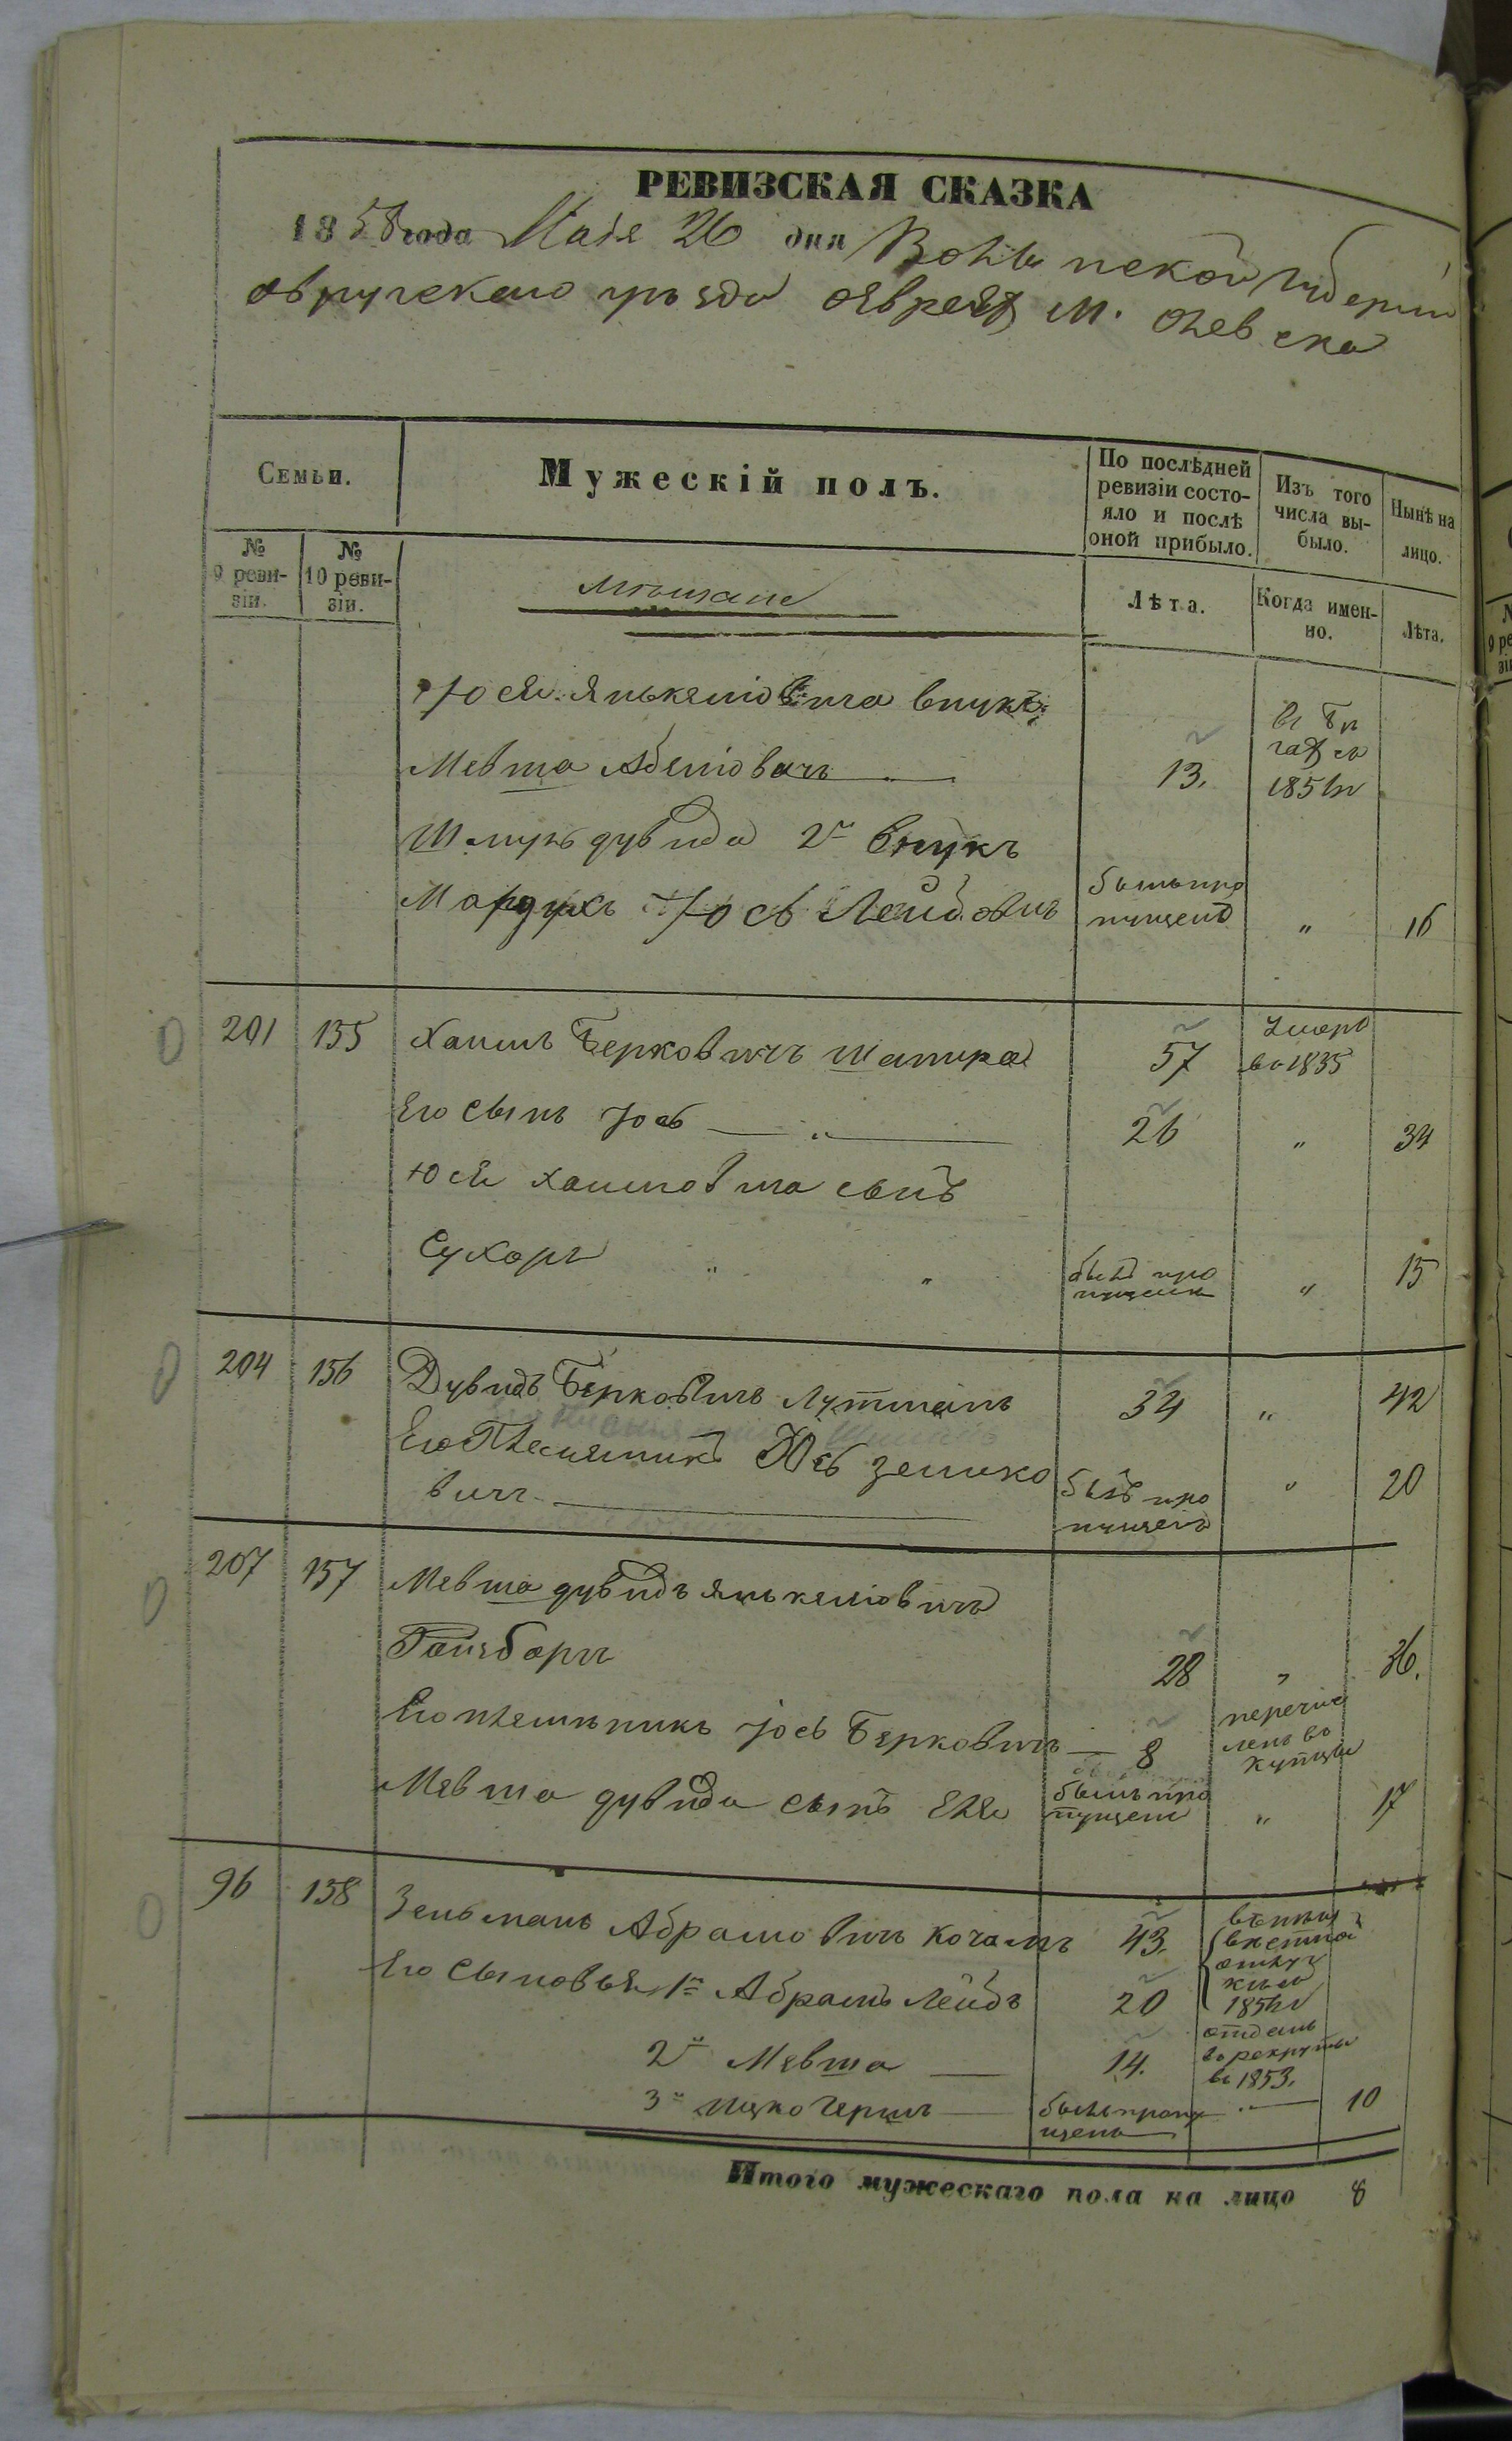 РЕВИЗСКАЯ СКАЗКА
1858 года Маія 26 дня Волынской Губерніи
Овручскаго уѣзда Еврей м. Олевска
Семьи.
Мужескій полъ.
По послѣдней ревизіи состо-
яло и послѣ оной прибыло.
Изъ того числа вы-
было.
Нынѣ на лицо.
№ 9 реви-
зіи.
№ 10 реви-
зіи.
Мѣщане
Лѣта.
Когда имен-
но.
Лѣта.
Юся Янькеліовича внукъ
Мевша Абеліовичъ 13. въ
1851
Шмуль Дувида 2й внукъ
Мардухъ Іось Лейбовичъ былъ про
пущенъ " 16
201 155 Хаимъ Берковичъ Шапира 57 Умеръ
въ 1855
Его сынъ Іось " 26 " 34
Юся Хаимовича сынъ
Сухоръ " " былъ про
пущенъ " 15
204 156 Дувидъ Берковичъ Лутманъ 34 " 42
Его племяникъ Іось Зелико
вичъ былъ про
пущенъ " 20
207 157 Мевша Дувидъ Янькеліовичъ
Гинзбаргъ 28 " 36.
Его племѣникъ Іось Берковичъ 8 перечис
ленъ въ
купцы
Мевша Дувида сынъ Еля былъ про
пущенъ " 17
96 158 Зельманъ Абрамовичъ 43.
Его сыновья 1й Абрамъ Лейбъ 20
1851
2й Мевша 14. отданъ
въ рекруты
въ 1853.
3й Ицко Гершъ былъ пропу
щенъ " 10
Итого мужескаго пола на лицо 8